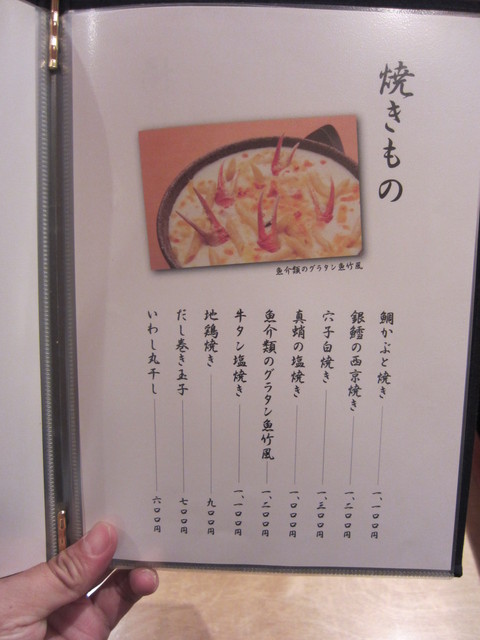 焼きもの
魚介類のグラタン魚竹風
鯛かぶと焼き 一、一〇〇円
銀鱈の西京焼き 一、二〇〇円
穴子白焼き 一、三〇〇円
真蛸の塩焼き 一、〇〇〇円
魚介類のグラタン魚竹風 一、二〇〇円
牛タン塩焼き 一、一〇〇円
地鶏焼き 九〇〇円
だし巻き玉子 七〇〇円
いわし丸干し 六〇〇円